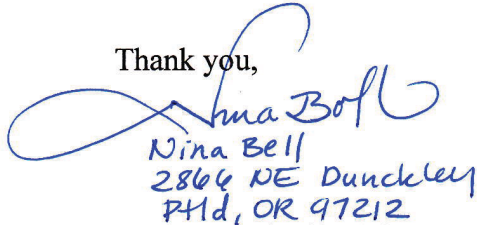 Thank you,
Nina Bell
Nina Bell
2866 NE Dunckley
Ptld, OR 97212